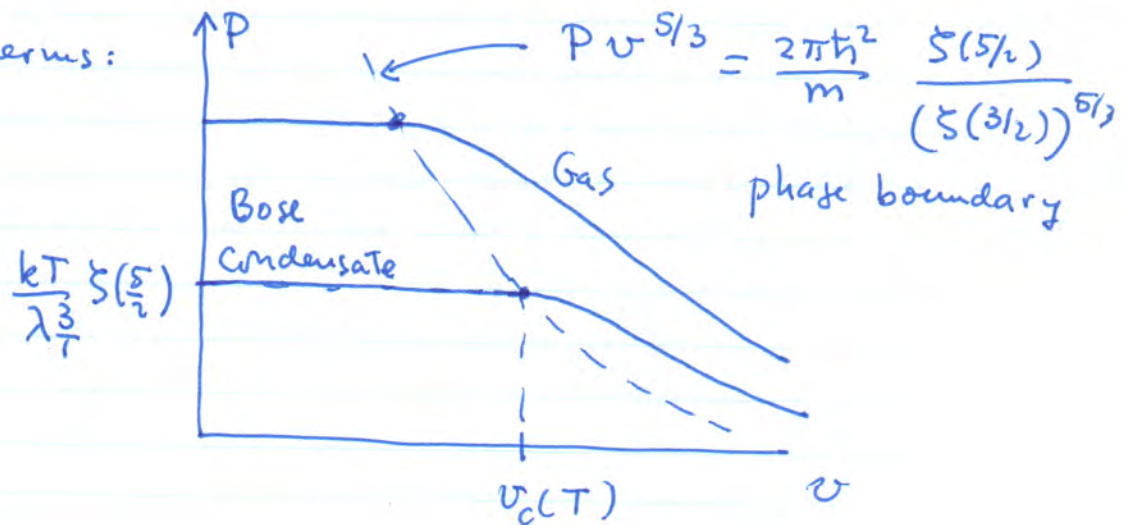 erms:
P
P v^{5/3} = \frac{2πħ^2}{m} \frac{ζ(5/2)}{(ζ(3/2))^{5/3}}
Gas
phase boundary
Bose
Condensate
\frac{kT}{λ_T^3} ζ(\frac{5}{2})
v_c(T)
v